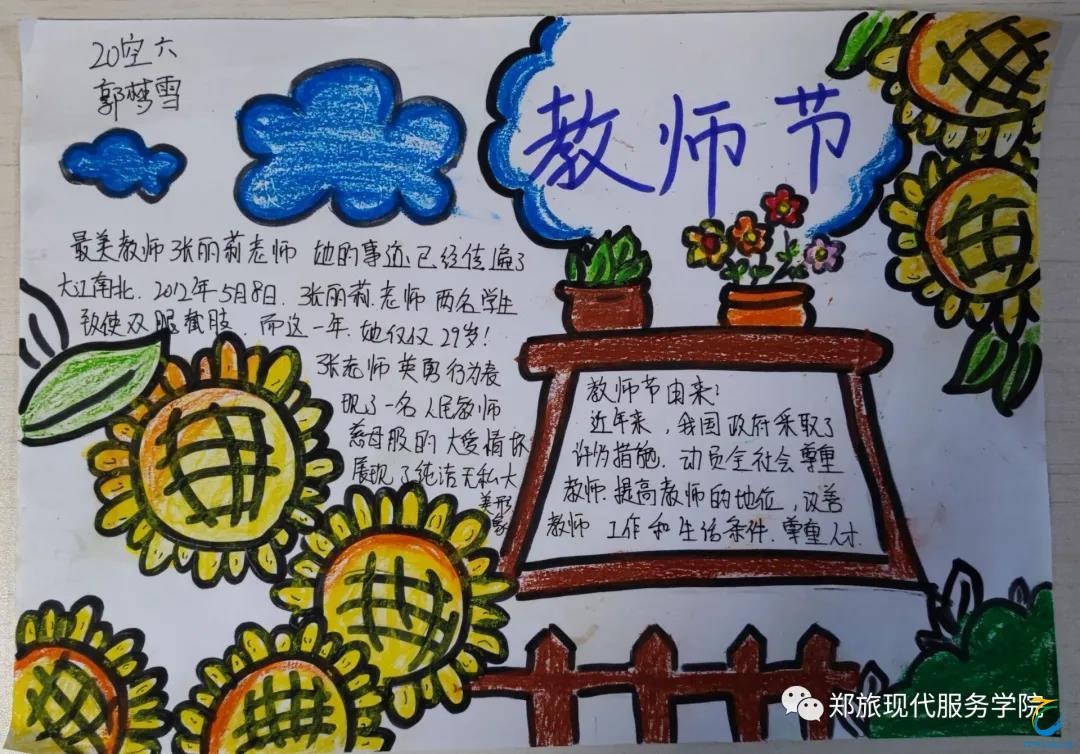 20空六
郭梦雪
教师节
最美教师张丽莉老师 她的事迹已经传遍了
大江南北.2012年5月8日.张丽莉老师两名学生
致使双腿截肢.而这一年.她仅仅29岁!
张老师英勇行为表
现了一名人民教师
慈母般的大爱情怀
展现了纯洁无私大
美形
象
教师节由来:
近年来,我国政府采取了
许多措施.动员全社会尊重
教师.提高教师的地位,改善
教师工作和生活条件.尊重人才.
郑旅现代服务学院